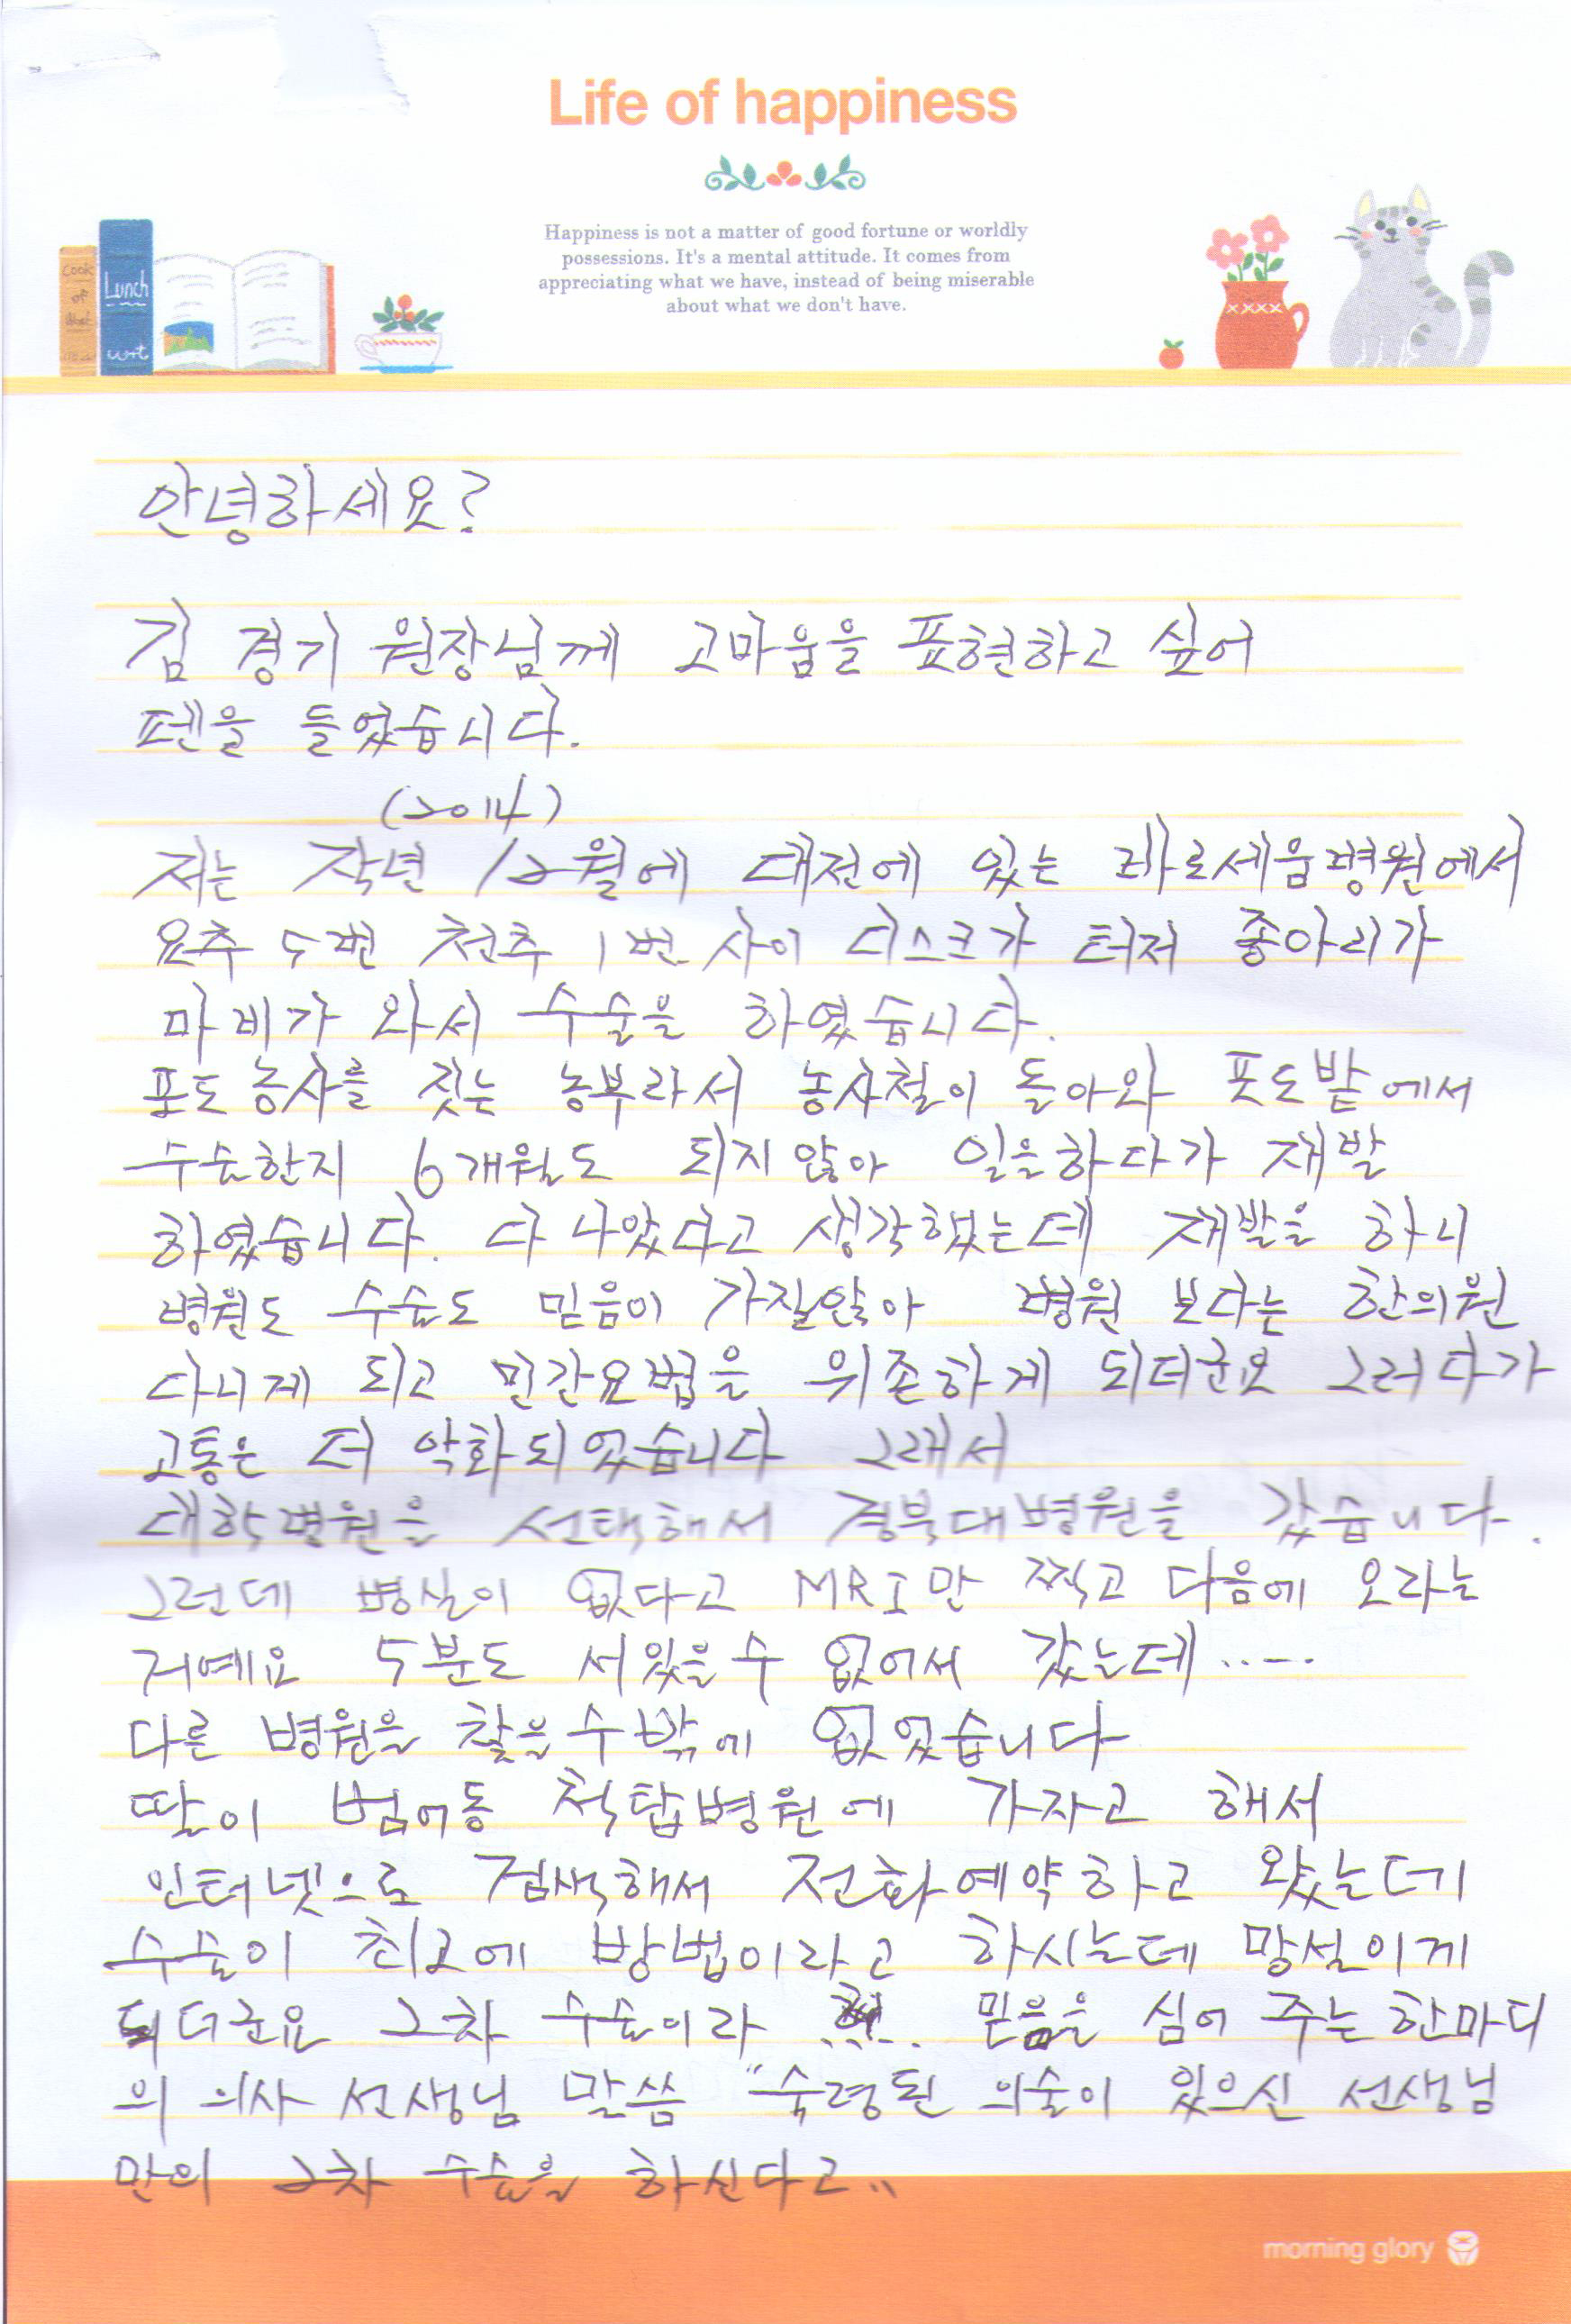 Life of happiness
Happiness is not a matter of good fortune or worldly
possessions. It's a mental attitude. It comes from
appreciating what we have, instead of being miserable
about what we don't have.
Cook
of
Lunch
안녕하세요?
김 경기 원장님께 고마움을 표현하고 싶어
펜을 들었습니다.
(2014)
저는 작년 12월에 대전에 있는 바로세움병원에서
요추 5번 천추 1번 사이 디스크가 터져 종아리가
마비가 와서 수술을 하였습니다.
포도농사를 짓는 농부라서 농사철이 돌아와 포도밭에서
수술한지 6개월도 되지않아 일을하다가 재발
하였습니다. 다 나았다고 생각했는데 재발을 하니
병원도 수술도 믿음이 가질않아 병원 보다는 한의원
다니게 되고 민간요법을 위존하게 되더군요 그러다가
고통은 더 악화되었습니다 그래서
대학병원을 선택해서 경북대병원을 갔습니다.
그런데 병실이 없다고 MRI만 찍고 다음에 오라는
거예요 5분도 서있을수 없어서 갔는데.....
다른 병원을 찾을수밖에 없었습니다
딸이 범어동 척탑병원에 가자고 해서
인터넷으로 검색해서 전화예약하고 왔는데
수술이 최고에 방법이라고 하시는데 망설이게
되더군요 2차 수술이라 믿음을 심어 주는 한마디
의 의사 선생님 말씀 "숙령된 의술이 있으신 선생님
만의 2차 수술을 하신다고..
morning glory